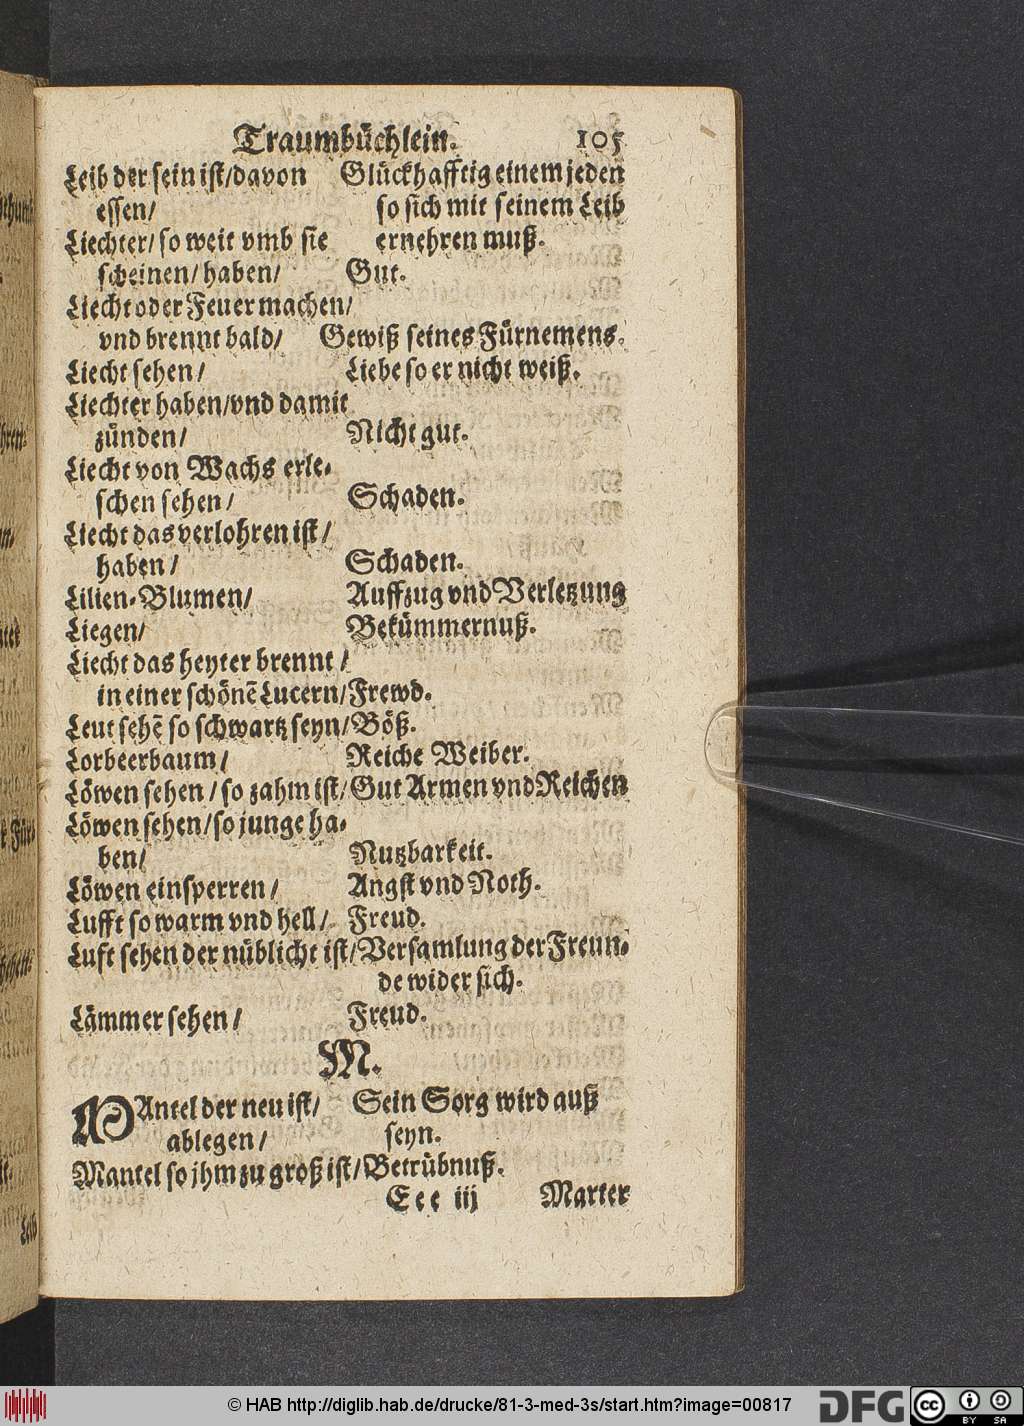 Traumbüchlein. 105
Leib der sein ist/davon Glückhafftig einem jeden
essen/ so sich mit seinem Leib
Liechter/ so weit vmb sie ernehren muß.
scheinen/ haben/ Gut.
Liecht oder Feuer machen/
vnd brennt bald/ Gewiß seines Fürnemens.
Liecht sehen/ Liebe so er nicht weiß.
Liechter haben/vnd damit
zünden/ Nicht gut.
Liecht von Wachs erle-
schen sehen/ Schaden.
Liecht das verlohren ist/
haben/ Schaden.
Lilien-Blumen/ Auffzug vnd Verletzung
Liegen/ Bekümmernuß.
Liecht das heyter brennt/
in einer schönẽ Lucern/ Frewd.
Leut sehẽ so schwartz seyn/ Böß.
Lorbeerbaum/ Reiche Weiber.
Löwen sehen/ so zahm ist/ Gut Armen vnd Reichen
Löwen sehen/so junge ha-
ben/ Nutzbarkeit.
Löwen einsperren/ Angst vnd Noth.
Lufft so warm vnd hell/ Freud.
Luft sehen der nüblicht ist/ Versamlung der Freun-
de wider sich.
Lämmer sehen/ Freud.
M.
MAntel der neu ist/ Sein Sorg wird auß
ablegen/ seyn.
Mantel so jhm zu groß ist/ Betrübnuß.
Eee iij Marter
Leib
© HAB http://diglib.hab.de/drucke/81-3-med-3s/start.htm?image=00817
DFG
cc
BY SA